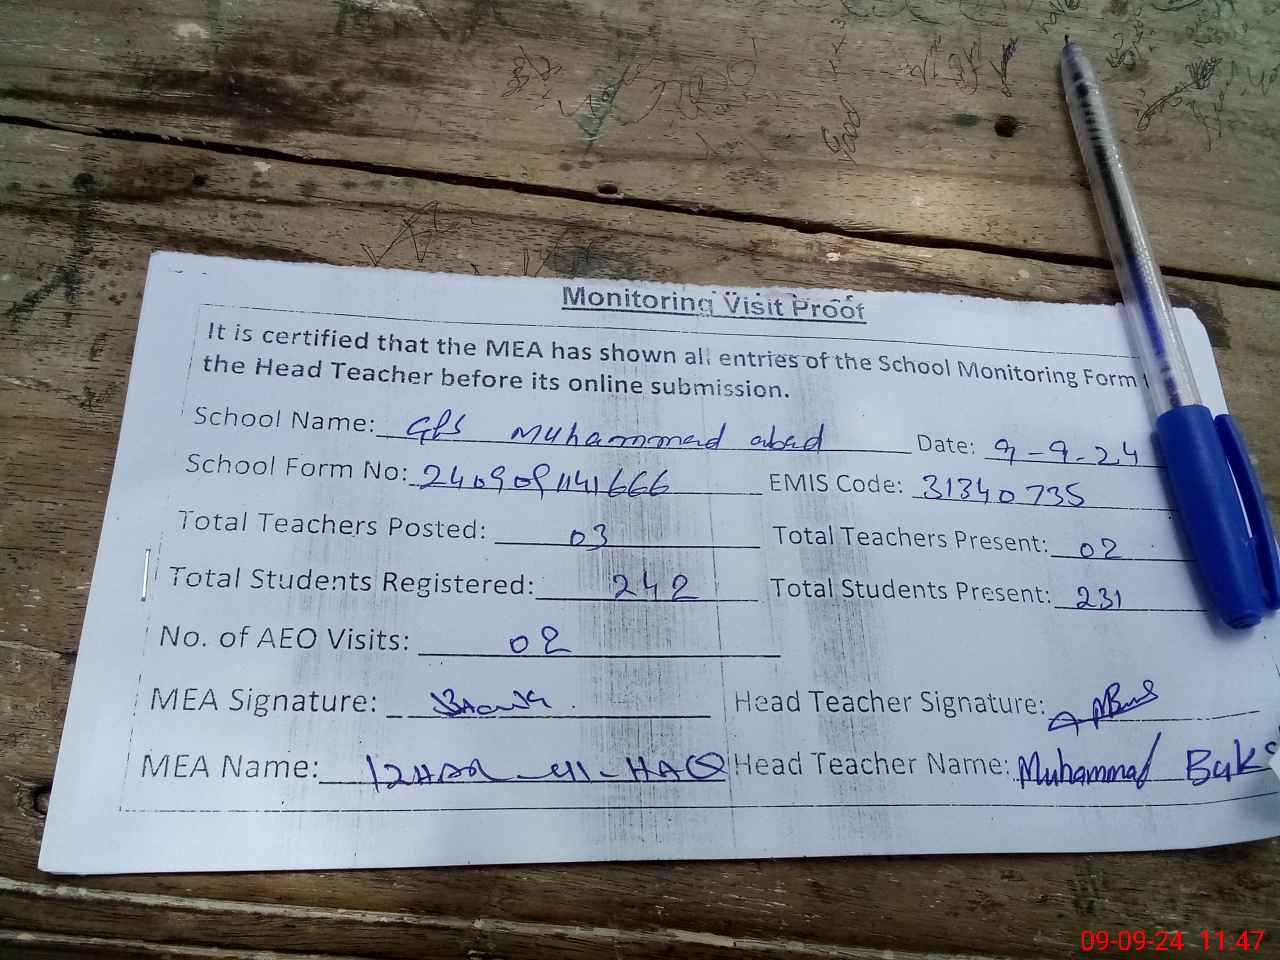 Good
Monitoring Visit Proof
It is certified that the MEA has shown all entries of the School Monitoring Form
the Head Teacher before its online submission.
School Name: GPS Muhammad abad Date: 9-9-24
School Form No: 240909141666 EMIS Code: 31340735
Total Teachers Posted: 03 Total Teachers Present: 02
Total Students Registered: 242 Total Students Present: 231
No. of AEO Visits: 02
MEA Signature: Head Teacher Signature:
MEA Name: IZHAR-ul-HAQ Head Teacher Name: Muhammad
09-09-24 11:47